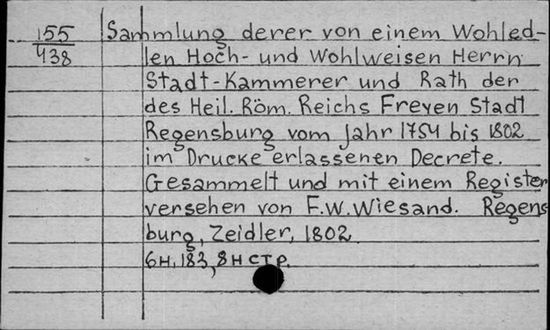 155
438
Sammlung derer von einem Wohled-
len Hoch- und Wohlweisen Herrn
Stadt-Kammerer und Rath der
des Heil. Röm. Reichs Freyen Stadt
Regensburg vom Jahr 1754 bis 1802
im Drucke erlassenen Decrete.
Gesammelt und mit einem Register
versehen von F.W. Wiesand. Regens
burg, Zeidler, 1802
6H, 183, 8H CTP.